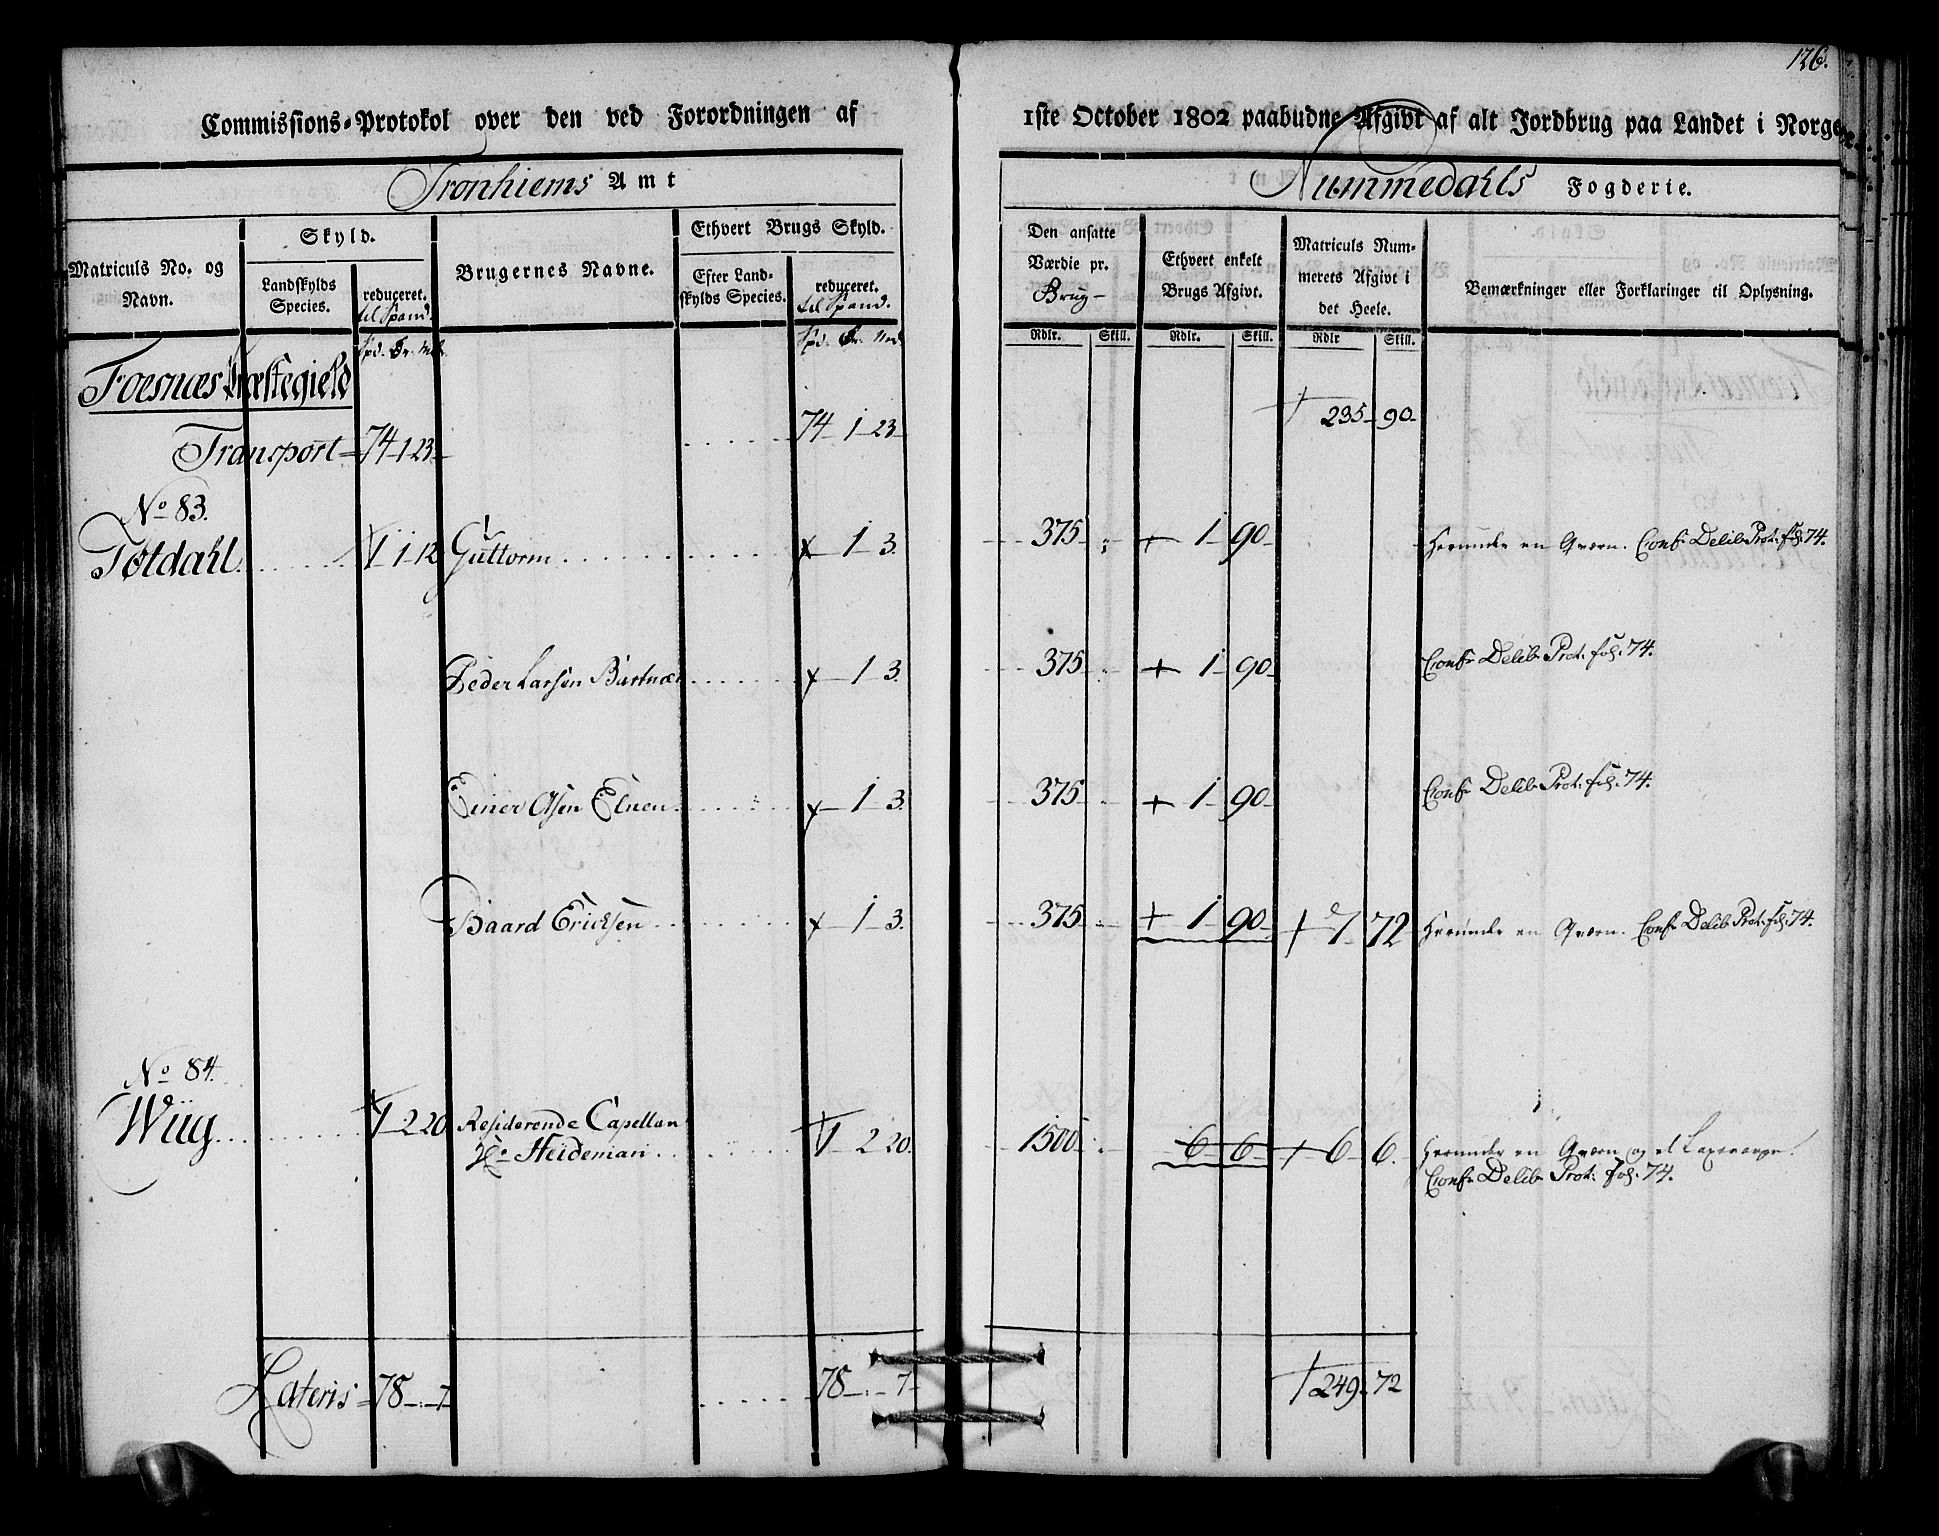 126.
Commissions-Protokol over den ved Forordningen af 1ste October 1802 paabudne Afgivt af alt Jordbrug paa Landet i Norge.
Tronhiems Amt
Nummedahls Fogderie.
Matriculs No. og Navn.
Skyld.
Landskylds Species.
reduceret. til Spand.
Brugernes Navne.
Ethvert Brugs Skyld.
Efter Landskylds Species.
reduceret. til Spand.
Den ansatte Værdie pr. Brug
Ethvert enkelt Brugs Afgivt.
Matriculs Nummerets Afgivt i det Heele.
Bemærkninger eller Forklaringer til Oplysning.
Spd. Ør. Mrk. Spd. Ør. Mrk. Rdlr. Skill. Rdlr. Skill. Rdlr Skill.
Foesnæs Præstegield
Transport 74 1 23 74 1 23 235 90
No 83.
Tøtdahl 1 1 12 Guttorm 1 3. 375 1 90 Herunder en Qværn. Confr Delib Prot: fol: 74.
Peder Larsen 1 3. 375 1 90 Confr Delib Prot: fol: 74.
Einer Olsen 1 3. 375 1 90 Confr Delib Prot: fol: 74.
Baard Ericksen 1 3. 375 1 90 7 72 Herunder en Qværn. Confr Delib Prot: fol: 74.
No 84.
Wiig 1 2 20 Residerende Capellan 1 2 20. 1500 6 6 6 6. Herunder en Qværn og et
Hr Heideman Confr Delib Prot: fol: 74.
Lateris 78 7 78 7 249 72